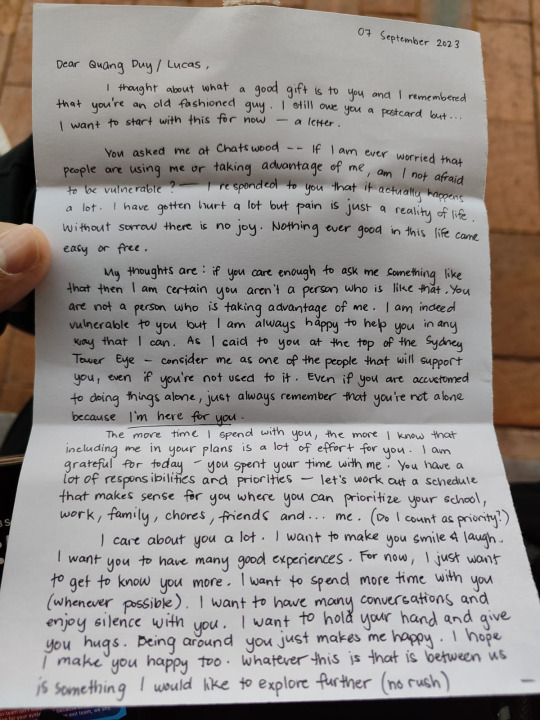 07 September 2023
Dear Quang Duy / Lucas,
I thought about what a good gift is to you and I remembered
that you're an old fashioned guy. I still owe you a postcard but...
I want to start with this for now — a letter.
You asked me at Chatswood -- If I am ever worried that
people are using me or taking advantage of me, am I not afraid
to be vulnerable? — I responded to you that it actually happens
a lot. I have gotten hurt a lot but pain is just a reality of life.
Without sorrow there is no joy. Nothing ever good in this life came
easy or free.
My thoughts are: if you care enough to ask me something like
that then I am certain you aren't a person who is like that. You
are not a person who is taking advantage of me. I am indeed
vulnerable to you but I am always happy to help you in any
way that I can. As I said to you at the top of the Sydney
Tower Eye — consider me as one of the people that will support
you, even if you're not used to it. Even if you are accustomed
to doing things alone, just always remember that you're not alone
because I'm here for you.
The more time I spend with you, the more I know that
including me in your plans is a lot of effort for you. I am
grateful for today — you spent your time with me. You have a
lot of responsibilities and priorities — let's work out a schedule
that makes sense for you where you can prioritize your school,
work, family, chores, friends and... me. (Do I count as priority?)
I care about you a lot. I want to make you smile & laugh.
I want you to have many good experiences. For now, I just want
to get to know you more. I want to spend more time with you
(whenever possible). I want to have many conversations and
enjoy silence with you. I want to hold your hand and give
you hugs. Being around you just makes me happy. I hope
I make you happy too. Whatever this is that is between us
is something I would like to explore further (no rush) —